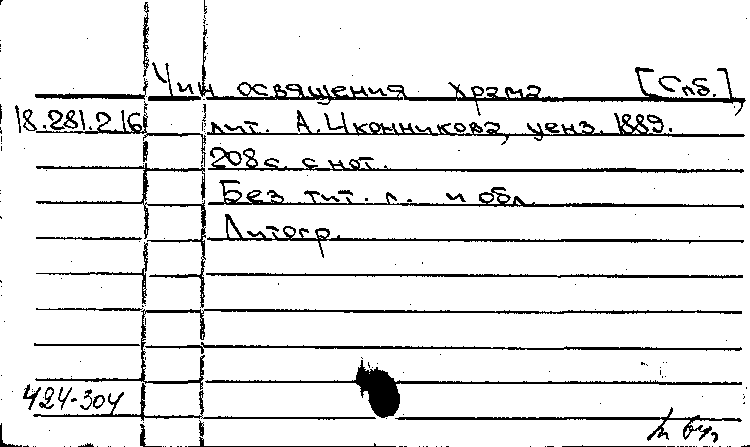 Чин освящения храма [Спб.],
18.281.2.16 лит. А. Иконникова, ценз. 1889.
208 с. с нот.
Без тит. л. и обл.
Литогр.
424-304